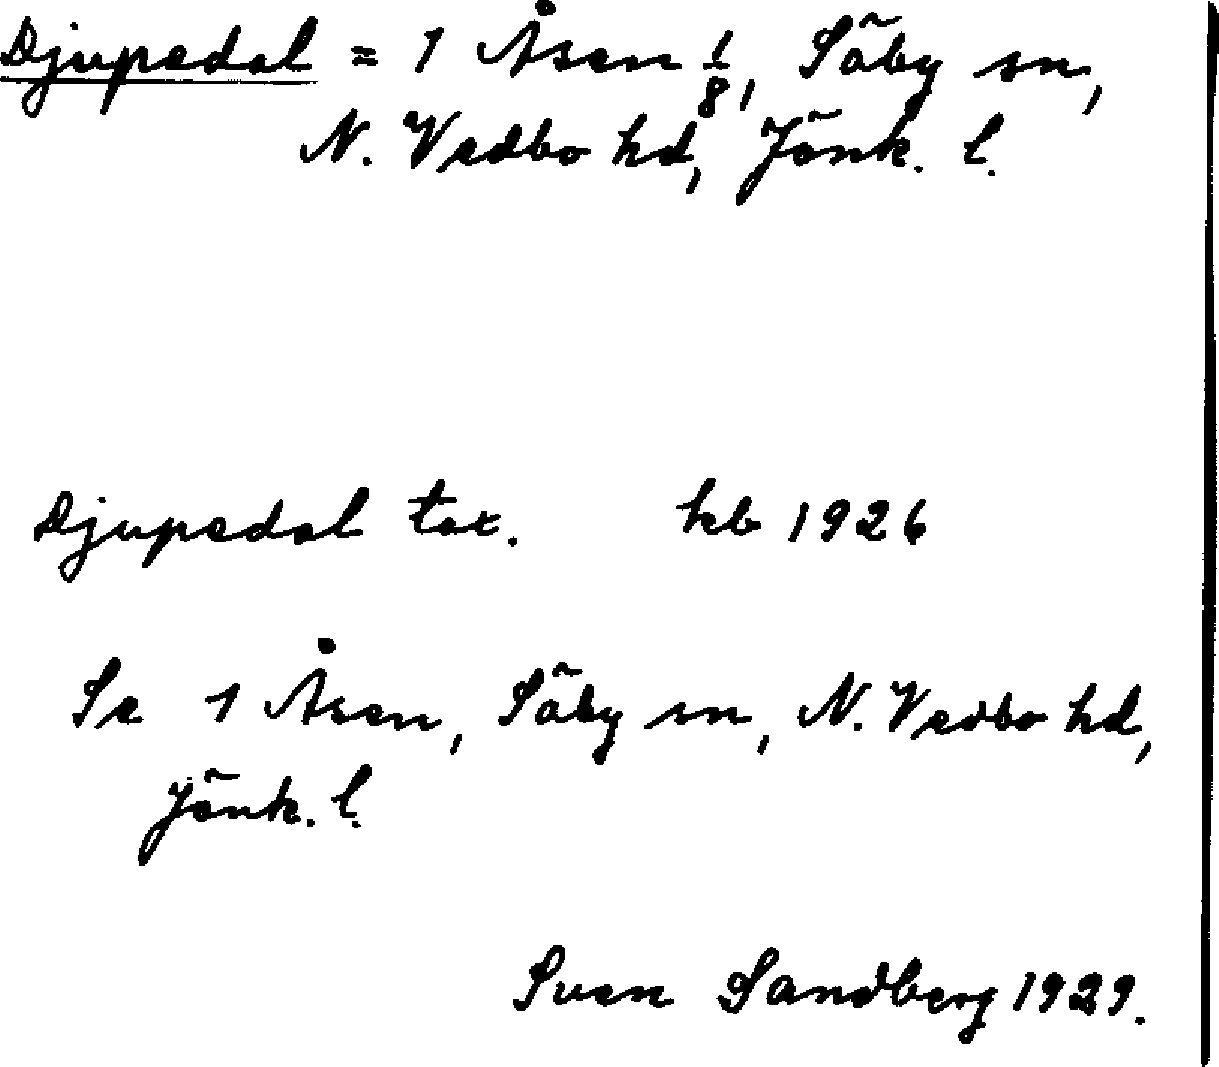 Djupedal = 1 Åsen 1/8, Säby sn,
N. Vedbo hd, Jönk. l.
Djupedal tor. kb 1926
Se 1 Åsen, Säby sn, N. Vedbo hd,
Jönk. l.
Sven Sandberg 1929.